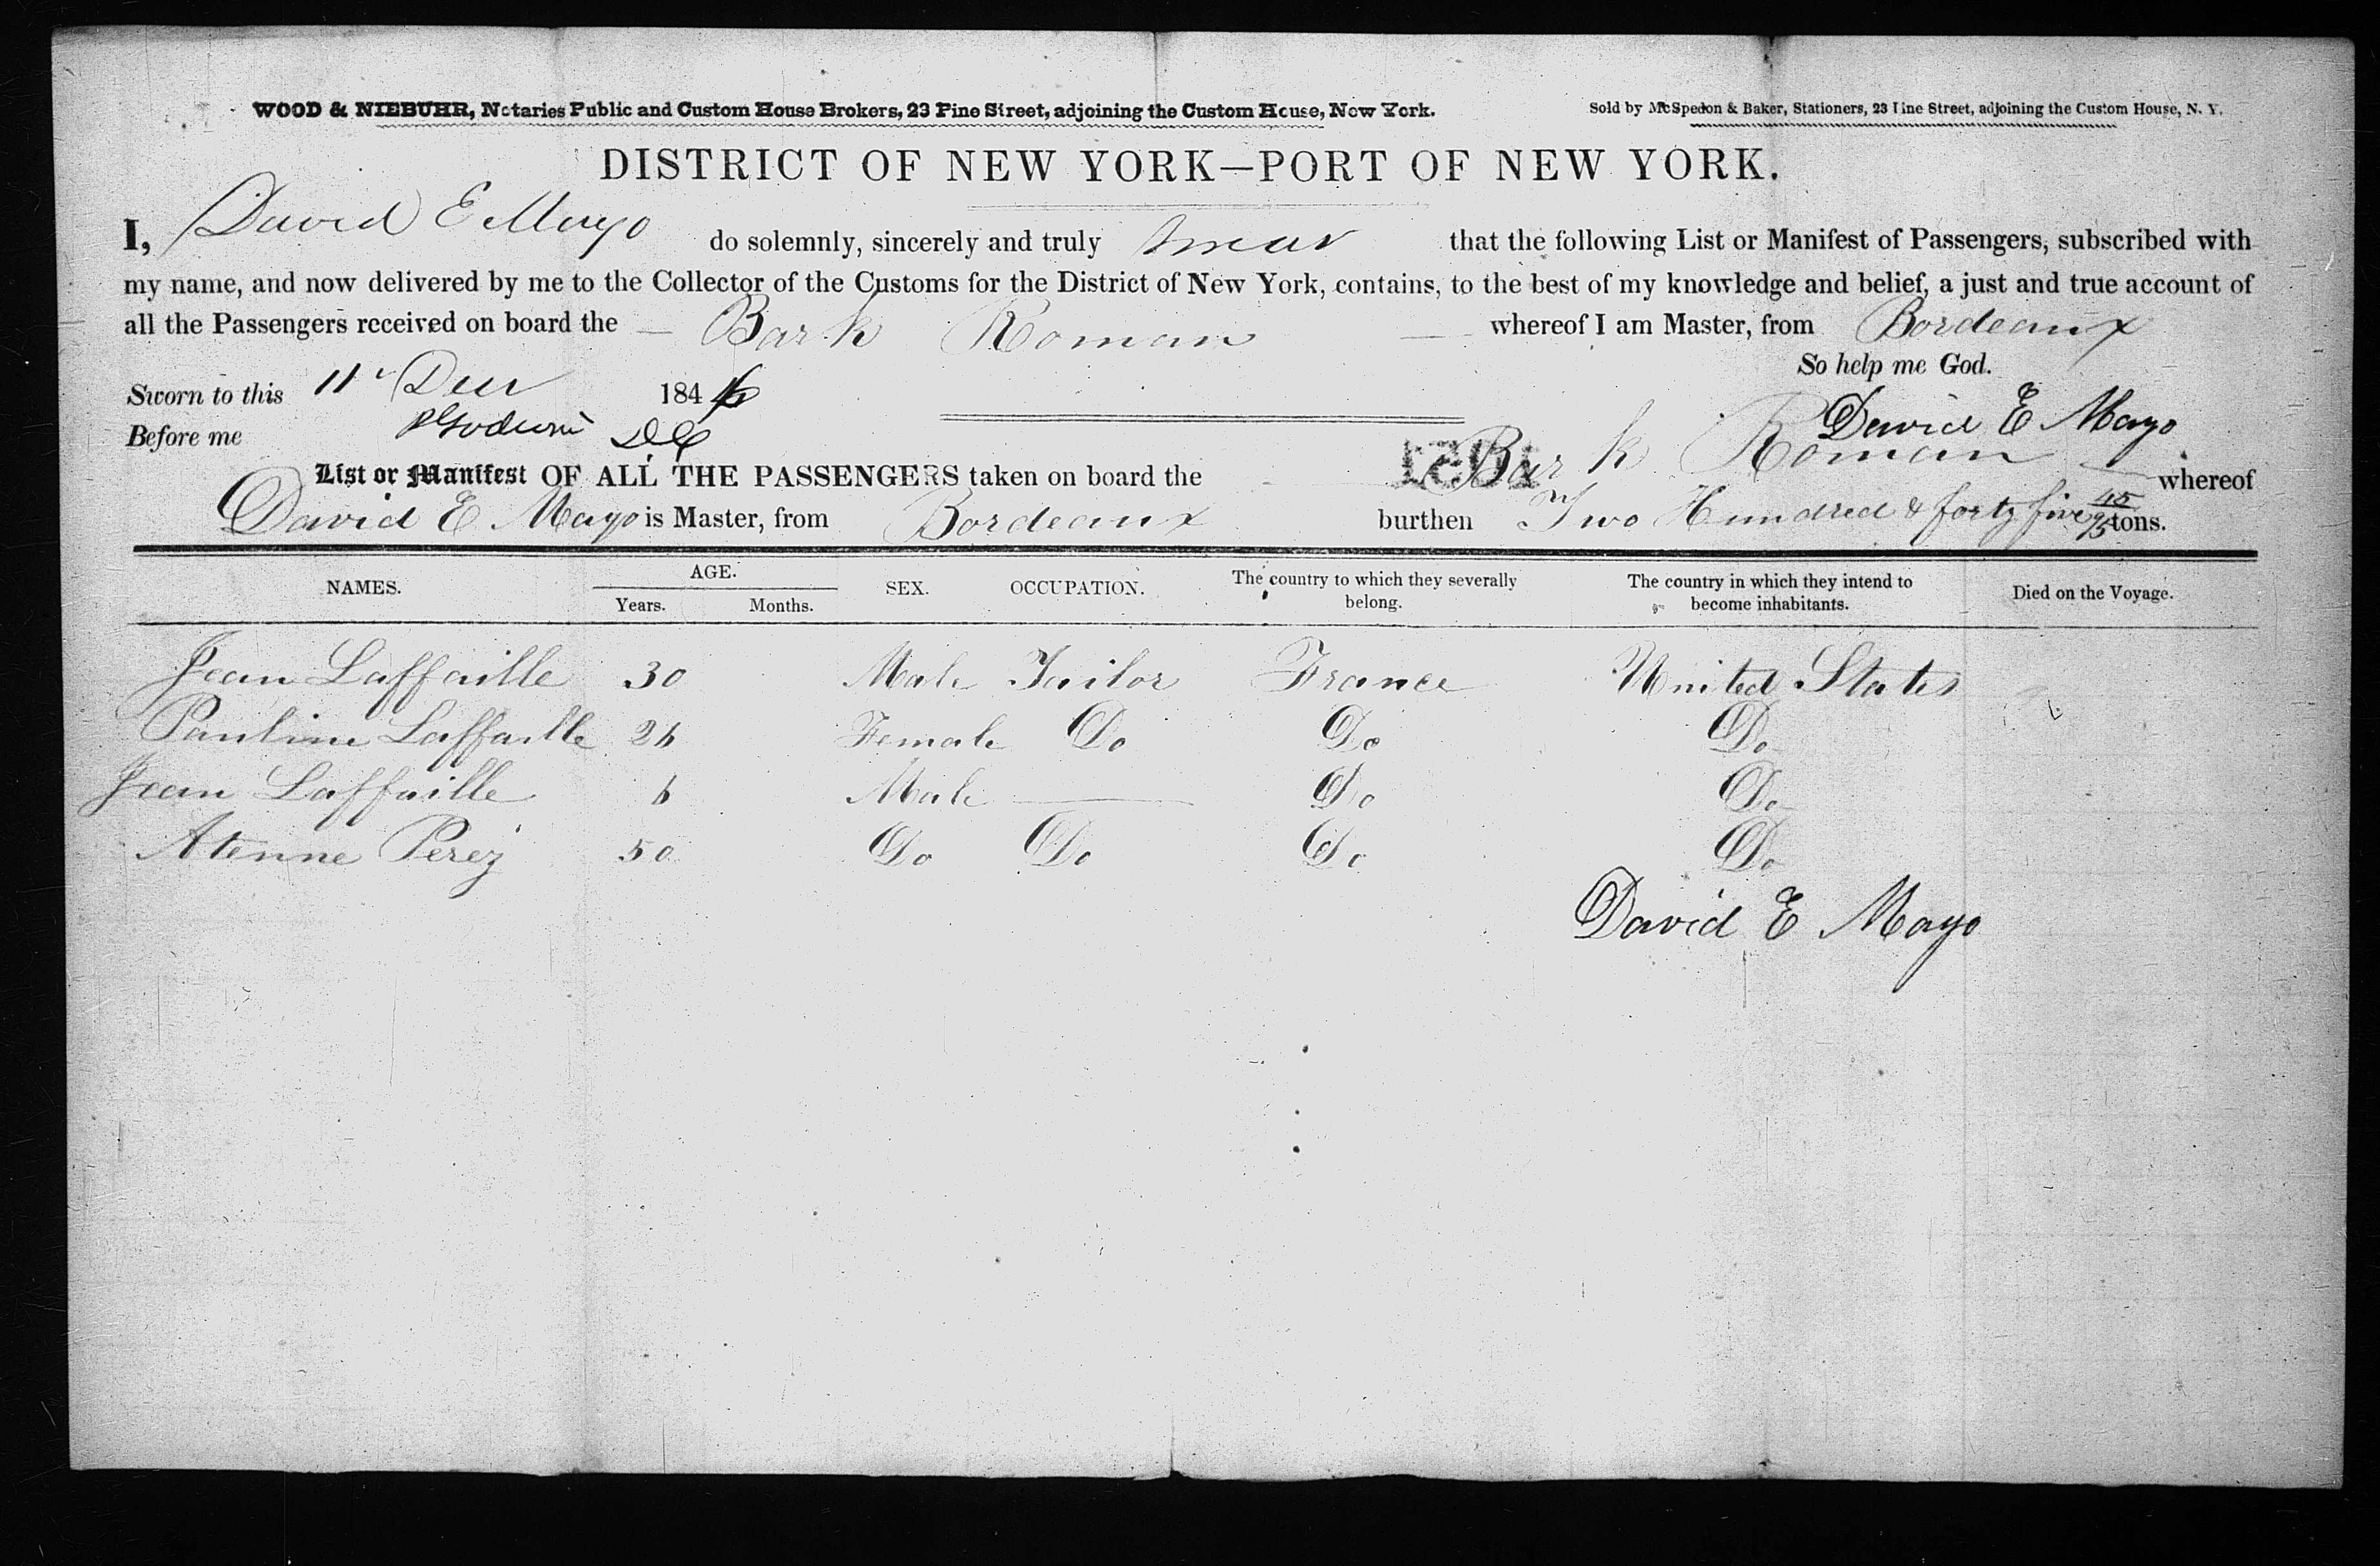 WOOD & NIEBUHR, Notaries Public and Custom House Brokers, 23 Pine Street, adjoining the Custom House, New York.
Sold by McSpedon & Baker, Stationers, 23 Pine Street, adjoining the Custom House, N. Y.
DISTRICT OF NEW YORK—PORT OF NEW YORK.
I, David E Mayo do solemnly, sincerely and truly swear that the following List or Manifest of Passengers, subscribed with
my name, and now delivered by me to the Collector of the Customs for the District of New York, contains, to the best of my knowledge and belief, a just and true account of
all the Passengers received on board the Bark Roman whereof I am Master, from Bordeaux
So help me God.
Sworn to this 11 Decr 1846
David E Mayo
Before me DC
List or Manifest OF ALL THE PASSENGERS taken on board the Bark Roman whereof
David E Mayo is Master, from Bordeaux burthen Two Hundred & forty five 45/95 tons.
NAMES. AGE. SEX. OCCUPATION. The country to which they severally belong. The country in which they intend to become inhabitants. Died on the Voyage.
Years. Months.
Jean Laffaille 30 Male Tailor France United States
Pauline Laffaille 26 Female Do Do Do
Jean Laffaille 6 Male — Do Do
Atenne Perez 50 Do Do Do Do
David E Mayo